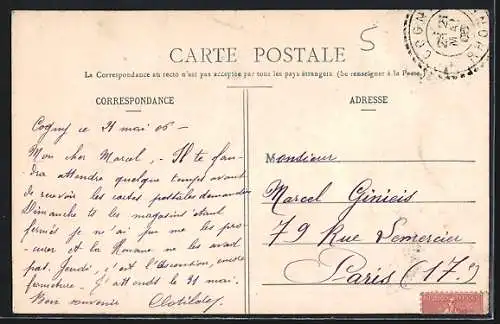 CARTE POSTALE
La Correspondance au recto n'est pas acceptée par tous les pays étrangers (Se renseigner à la Poste)
CORRESPONDANCE
ADRESSE
5
COGN
NORD
ce 21 mai 06 -
Mon cher Marcel, - Il te fau-
dra attendre quelque temps avant
de recevoir les cartes postales demandées
Dimanche ts les magasins étant
fermés je n'ai pu me les pro-
curer et la Rouane ne les avait
pas. Jeudi, c'est l'Ascension, encore
fermeture. J'attends le 31 mai.
Bon souvenir
Monsieur
Marcel
79 Rue Lemercier
Paris (17.e)